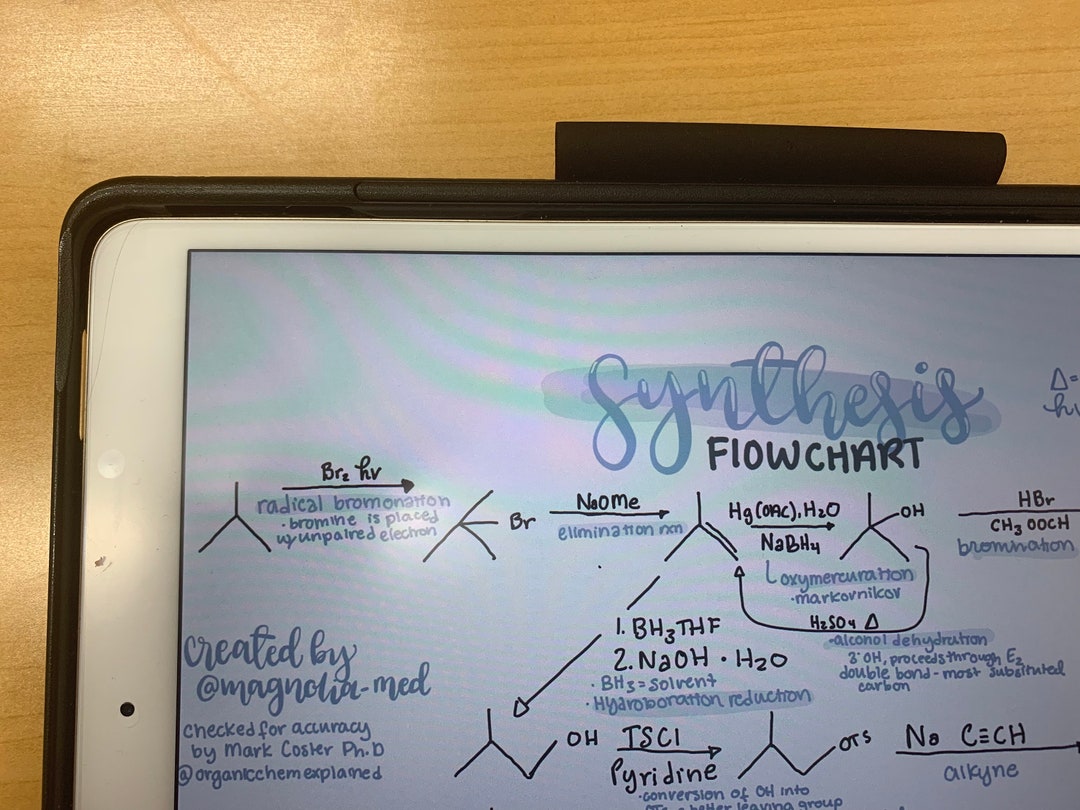 Synthesis
FLOWCHART
Δ=
Br₂ hv
radical bromonation
·bromine is placed
w/unpaired electron
Br
NaOMe
elimination rxn
Hg(OAC), H₂O
NaBH₄
oxymercuration
·markovnikov
OH
HBr
CH₃ OOCH
bromination
H₂SO₄ Δ
-alcohol dehydration
3°OH, proceeds through E₂
double bond - most substituted
carbon
1. BH₃THF
2. NaOH · H₂O
· BH₃ = solvent
· Hydroboration reduction
created by
@magnolia-med
checked for accuracy
by Mark Coster Ph.D
@organicchemexplained
OH
TSCl
Pyridine
·conversion of OH into
OTs a better leaving group
OTS
Na C≡CH
alkyne